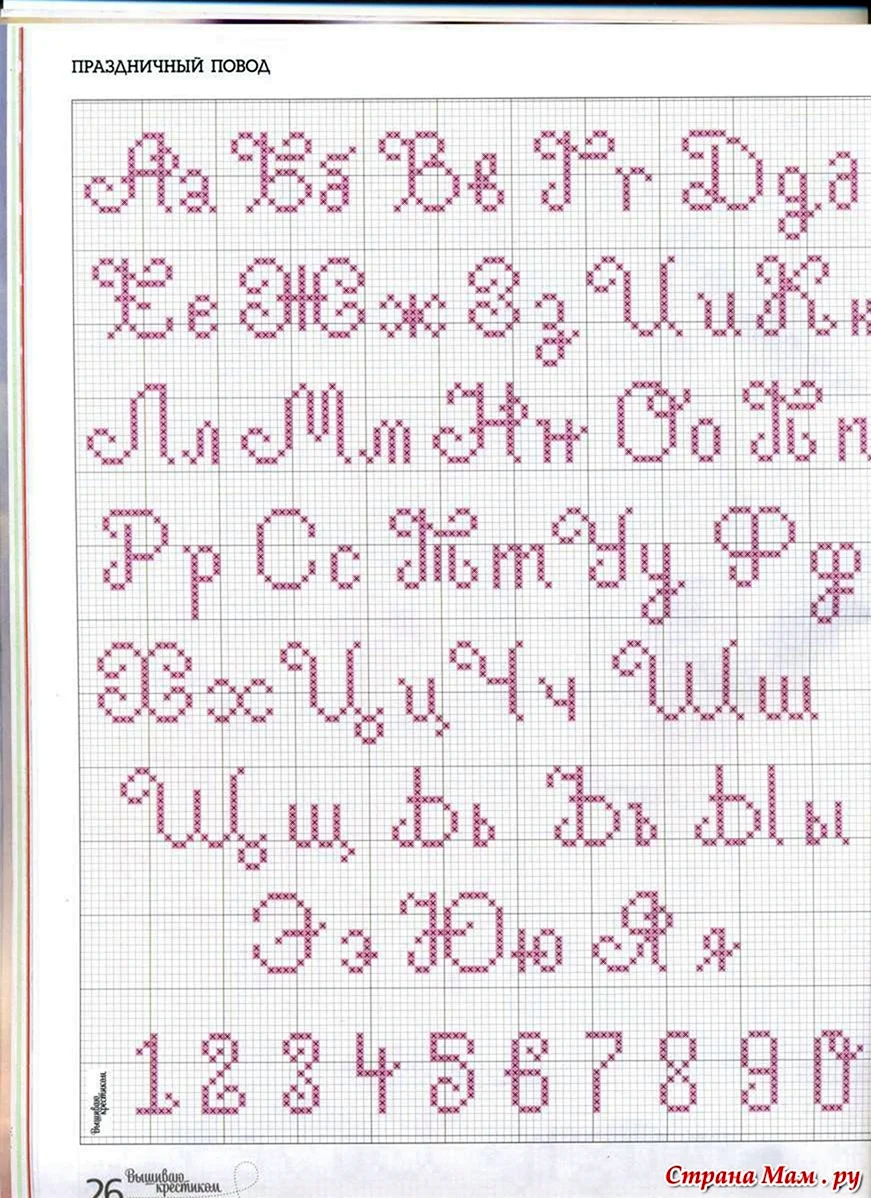 ПРАЗДНИЧНЫЙ ПОВОД
Аа Бб Вв Гг Ддд
Ее Жж Зз Ии Кк
Лл Мм Нн Оо Пп
Рр Сс Тт Уу Фф
Хх Цц Чч Шш
Щщ Ьь Ъъ Ыы
Ээ Юю Яя
1 2 3 4 5 6 7 8 9 0
Вышиваю
крестиком
26 Вышиваю
крестиком
Страна Мам.ру